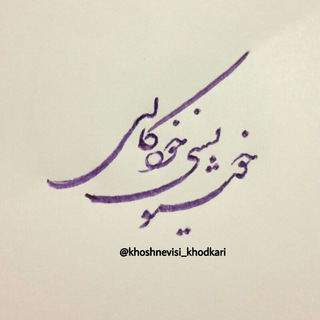 خوشنویسی خودکاری
@khoshnevisi_khodkari